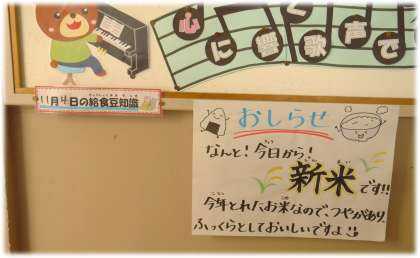 く
心に響歌声で
11月4日の給食豆知識
おしらせ
なんと!今日から!
新米です!!
今年とれたお米なので、つやがあり、
ふっくらとしておいしいですよ